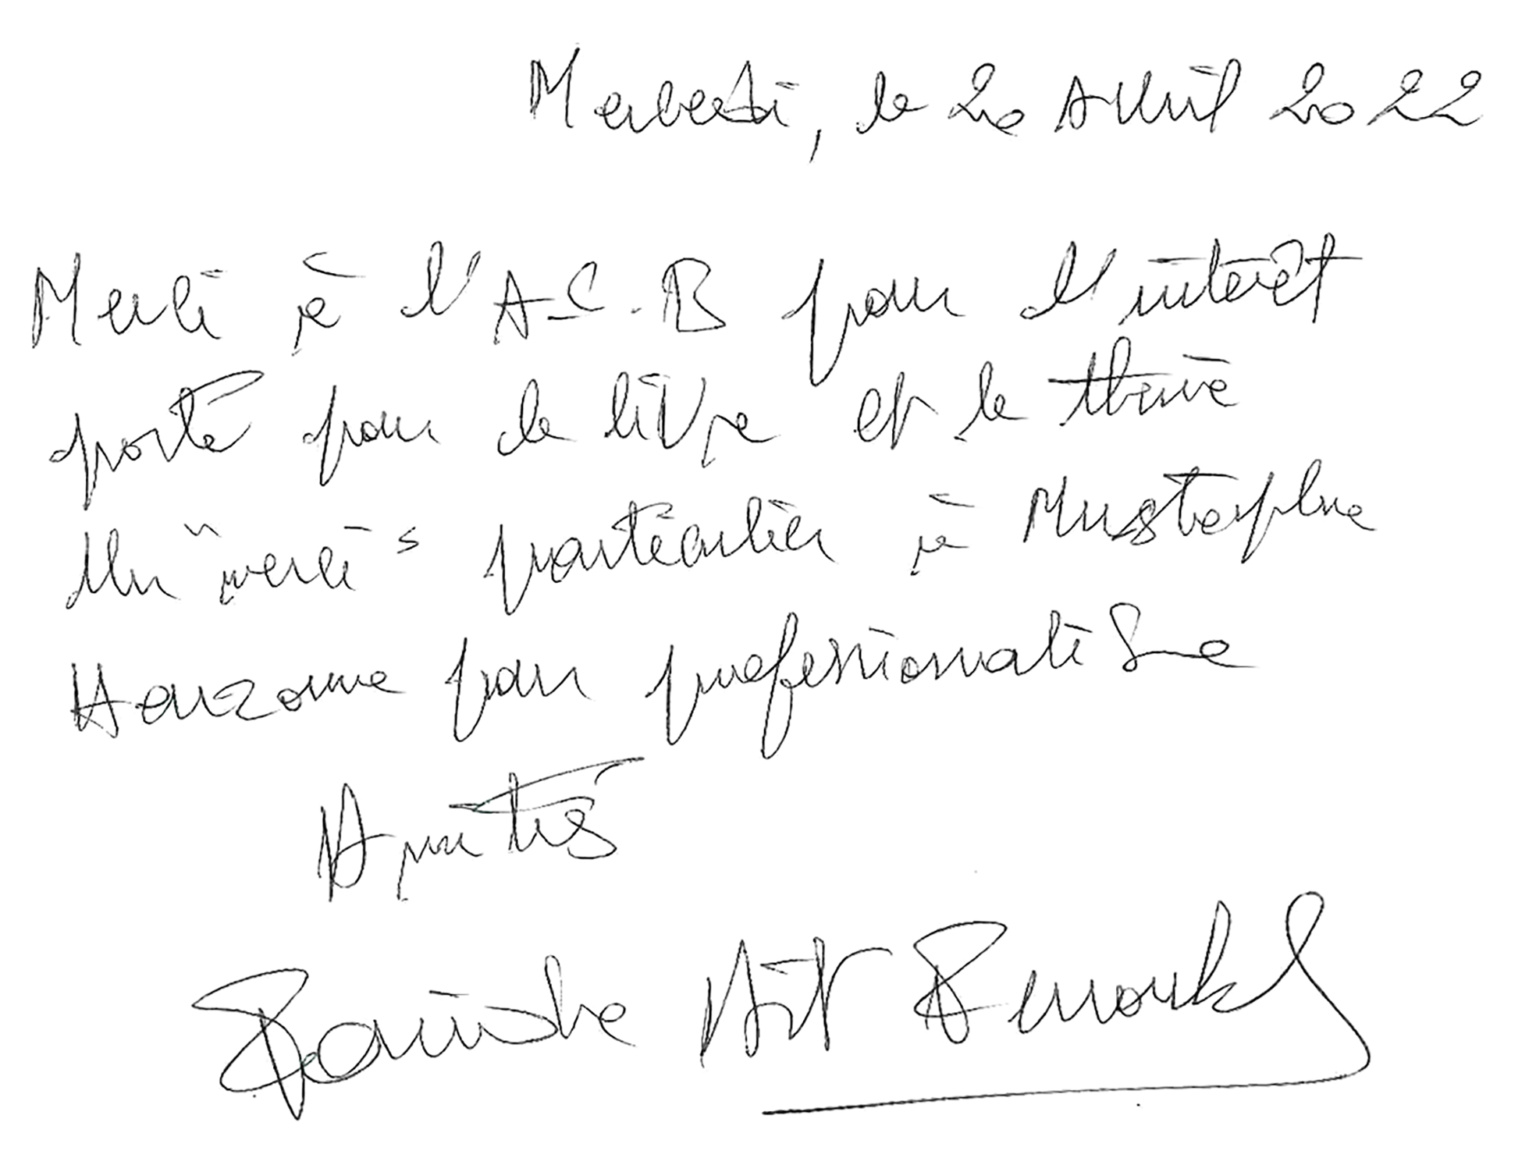 Mercredi, le 20 Avril 2022
Merci à l'A.C.B pour l'intérêt
porté pour le livre et le thème
Un "merci" particulier à Mustapha
Harzoune pour professionnalisme
Amitiés
Aït Benoukl